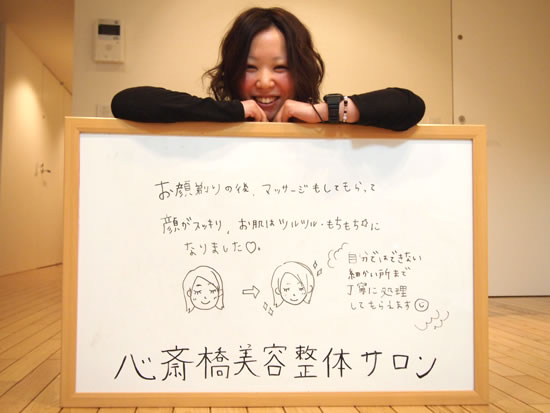 お顔剃りの後、マッサージもしてもらって
顔がスッキリ、お肌はツルツル・もちもち肌に
なりました♡。
自分ではできない
細かい所まで
丁寧に処理
してもらえます☺
心斎橋美容整体サロン